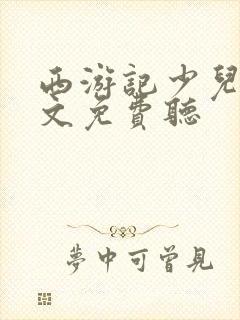 西游記少兒
文免費聽
夢中可曾見